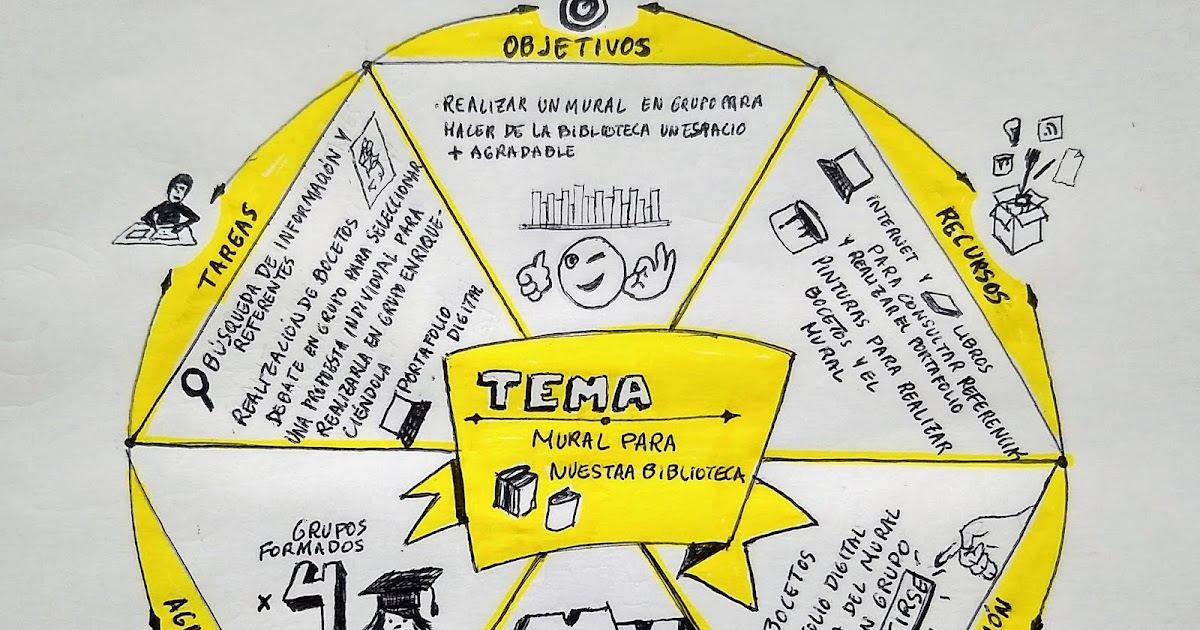 OBJETIVOS
·REALIZAR UN MURAL EN GRUPO PARA
HACER DE LA BIBLIOTECA UN ESPACIO
+ AGRADABLE
TAREAS
BÚSQUEDA DE INFORMACIÓN Y
REFERENTES
REALIZACIÓN DE BOCETOS
DEBATE EN GRUPO PARA SELECCIONAR
UNA PROPUESTA INDIVIDIAL PARA
REALIZARLA EN GRUPO ENRIQUE-
CIÉNDOLA
PORTAFOLIO
DIGITAL
RECURSOS
INTERNET Y LIBROS
PARA CONSULTAR REFERENCIAS
Y REALIZAR EL PORTAFOLIO
PINTURAS PARA REALIZAR
BOCETOS Y EL
MURAL
TEMA
MURAL PARA
NUESTRA BIBLIOTECA
GRUPOS
FORMADOS
x 4
BOCETOS
DIGITAL
DEL MURAL
GRUPO